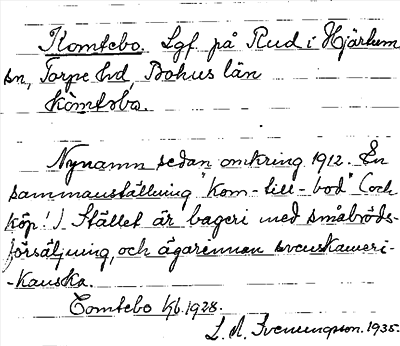 Komtebo. Lgf. på Rud i Hjärtum
sn, Torpe hd, Bohus län
kòmtəbo.
Nynamn sedan omkring 1912. En
sammanställning "kom-till-bod" (och
köp!) Stället är bageri med småbröds-
försäljning, och ägarennan svenskameri-
-kanska.
Comtebo Kb. 1928.
L. A. Svenungsson. 1935.